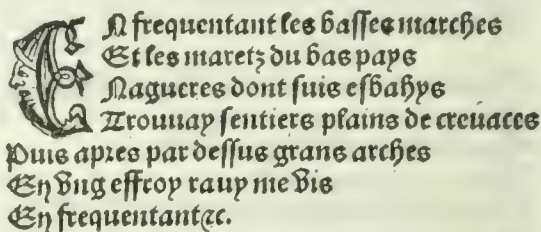 EN frequentant les basses marches
Et les maretz du bas pays
Nagueres dont suis esbahys
Trouuay sentiers plains de creuaces
Puis apres par dessus grans arches
En vng effroy rauy me vis
En frequentant ⁊c.